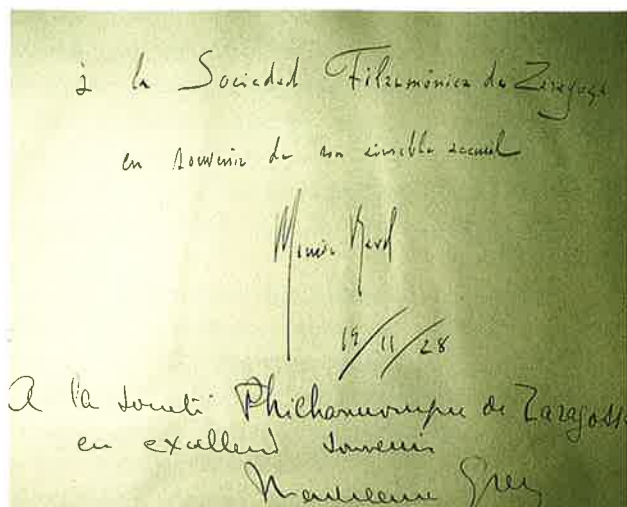 à la Sociedad Filarmónica de Zaragoza
en souvenir de son aimable accueil
Maurice Ravel
19/11/28
A la Société Philharmonique de Zaragosse
en excellent souvenir
Madeleine Grey